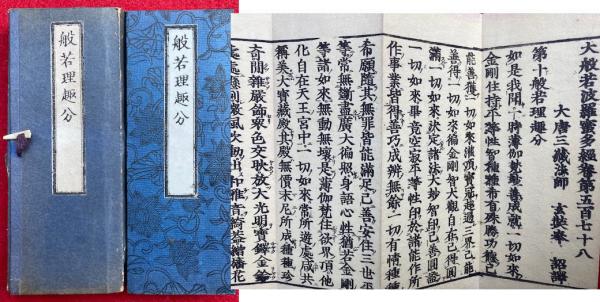 般若理趣分
般若理趣分
大般若波羅蜜多經卷第五百七十八
大唐三藏法師 玄奘奉 詔譯
第十般若理趣分
如是我聞一時薄伽梵妙善成就一切如來
金剛住持平等性智種種希有殊勝功德已
能善獲一切如來灌頂寶冠超過三界已能
善得一切如來徧金剛智大觀自在已得圓
滿一切如來決定諸法大妙智印已善圓證
一切如來畢竟空寂平等性印於諸能作所
作事業皆得善巧成辦無餘一切有情種種
希願隨其無罪皆能滿足已善安住三世平
等常無斷盡廣大徧照身語心性猶若金剛
等諸如來無動無壞是薄伽梵住欲界頂他
化自在天王宮中一切如來常所遊處咸共
稱美大寶藏殿其殿無價末尼所成種種珍
奇間雜嚴飾衆色交映放大光明寶鐸金鈴